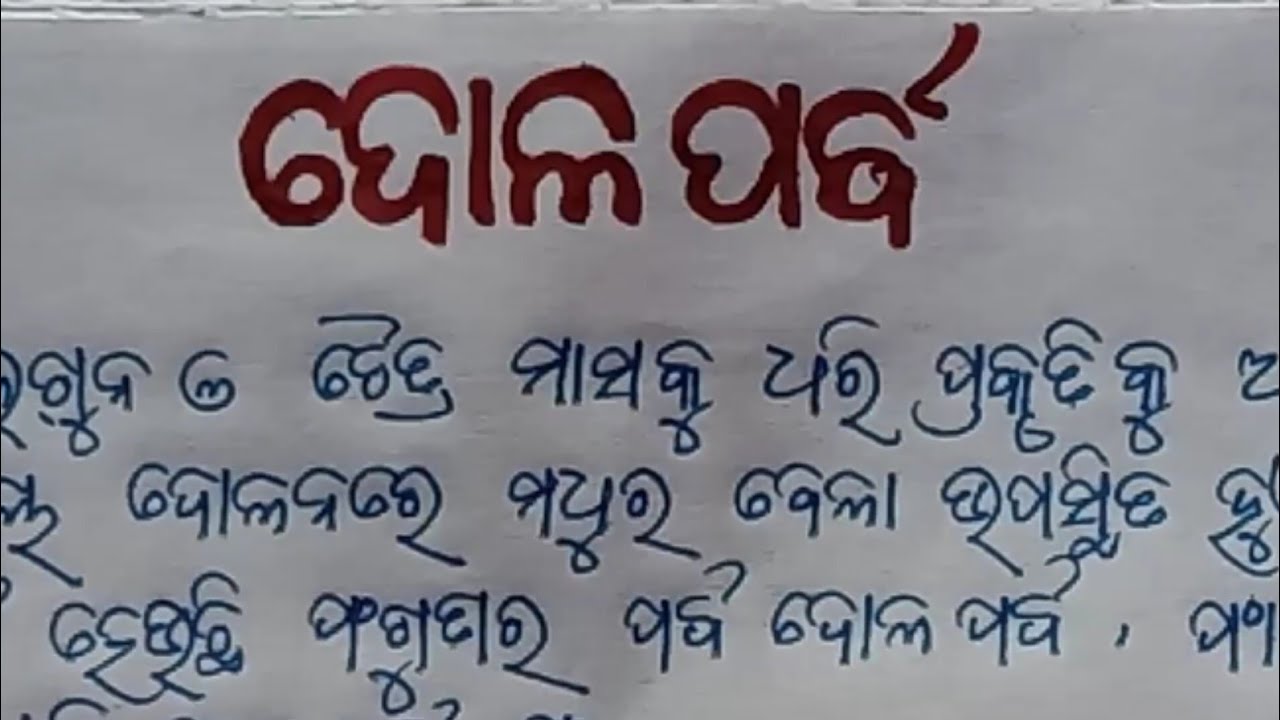 ଦୋଳ ପର୍ବ
ଗୁନ ଓ ଚୈତ୍ର ମାସକୁ ଧରି ପ୍ରକୃତିକୁ
ଦୋଳନରେ ମଧୁର ବେଳା ଉପସ୍ଥିତ
ହେଉଛି ପଂଗୁପର ପର୍ବ ଦୋଳ ପର୍ବ ।